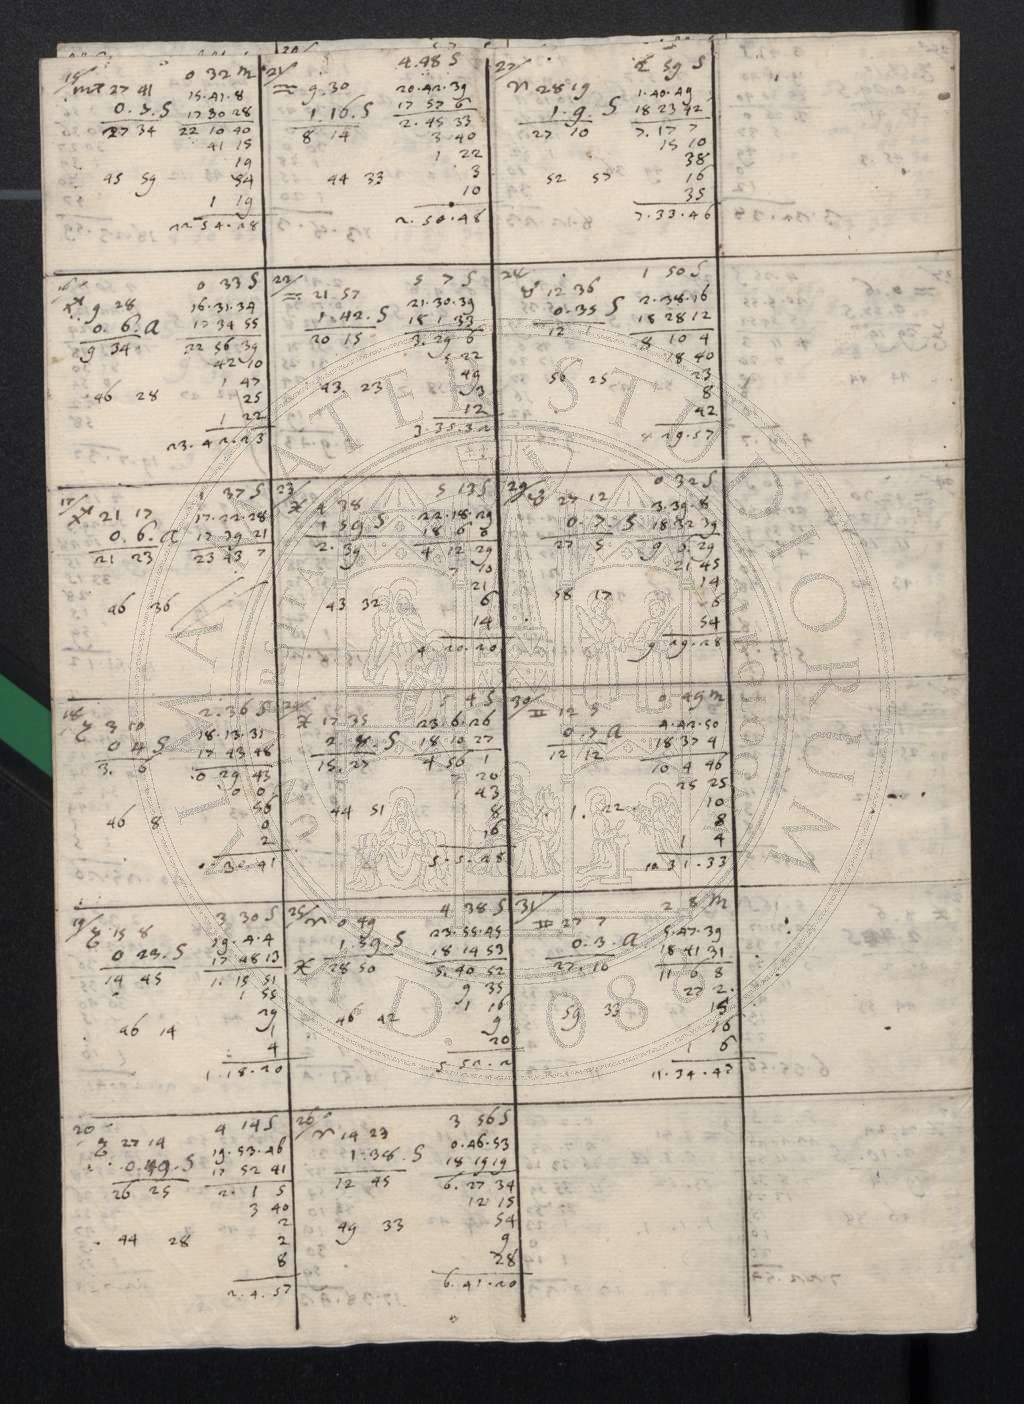 15/ 0 32 m
♏ 27 41 15.41.8
0.3.S 17 30 28
27 34 22 10 40
41 15
19
45 59 54
1 19
22.54.28
21/ 4.48 S
♒ 9.30 20.42.39
1 16.S 17 57 6
8 14 2.45 33
3 40
1 22
44 33 3
10
2.50.48
27/ 2 59 S
♈ 28 19 1.40.49
1.9.S 18 23 42
27 10 7.17 7
15 10
38
52 57 16
35
7.33.46
16/ 0 33 S
♐ 9 28 16.31.34
0.6.a 17 34 55
9 34 22 56 39
42 10
1 47
46 28 25
1 22
23.42.23
22/ 5 7 S
♒ 21 57 21.30.39
1.42.S 18 1 33
20 15 3.29 6
5 22
49
43 23 3
12
3.35.32
28 1 50 S
♉ 12 36 2.38.16
0.35 S 18 28 12
12 1 8 10 4
18 40
23
56 25 8
42
29.57
17/ 1 37 S
♐ 21 17 17.22.28
0.6.a 17 39 21
21 23 23 43 7
46 36
23/ 5 13 S
♓ 4 38 22.18.29
1 59 S 18 6
2.39 4 12 29
7 10
21
43 32 6
14
4 20.20
29/ 0 32 S
♉ 27 12 3.39.8
0.7.S 18 32 39
27 5 9 0.29
21 45
14
58 17 6
54
9 29.28
18/ 2.36 S
♑ 3 10 18.13.31
0 4 S 17 43 48
3. 6 0 29 43
0 0
56
46 8 0
2
0.30.41
24/ 5 4 S
♓ 17 35 23.6.26
2.8.S 18 10 27
15.27 4 56 1
20
43
44 51 8
16
5.5.28
30/ 0 49 m
♊ 12 5 4.42.50
0.7 a 18 37 4
12 12 10 4 46
25 25
10
1. 22 8
1 4
10 31.33
19/ 3 30 S
♑ 15 8 19.4.4
0 23.S 17 48 13
14 45 1.15 51
1 55
29
46 14 1
4
1.18.20
25/ 4 38 S
♈ 0 49 23.55.45
1.59.S 18 14 53
♓ 28 50 5.40 52
9 35
1 16
46 42 9
20
5.52.2
31/ 2 8 m
♊ 27 7 5.47.39
0.3.a 18 41 31
27.16 11 6 8
27 2
15
59 33 16
1 6
11.34.47
20 4 14 S
♑ 27 14 19.53.46
0.49.S 17 52 41
26 25 2.1 5
3 40
2
44 28 2
8
2.4.57
26 3 56 S
♈ 14 23 0.46.53
1.38.S 18 19 19
12 45 6.27 34
12 15
54
49 33 9
28
6.41.20